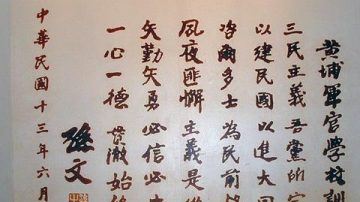 黃埔軍官學校訓
三民主義吾黨所宗
以建民國以進大同
咨爾多士為民前
夙夜匪懈主義是從
矢勤矢勇必信必
一心一德貫徹始
孫文
中華民國十三年六月